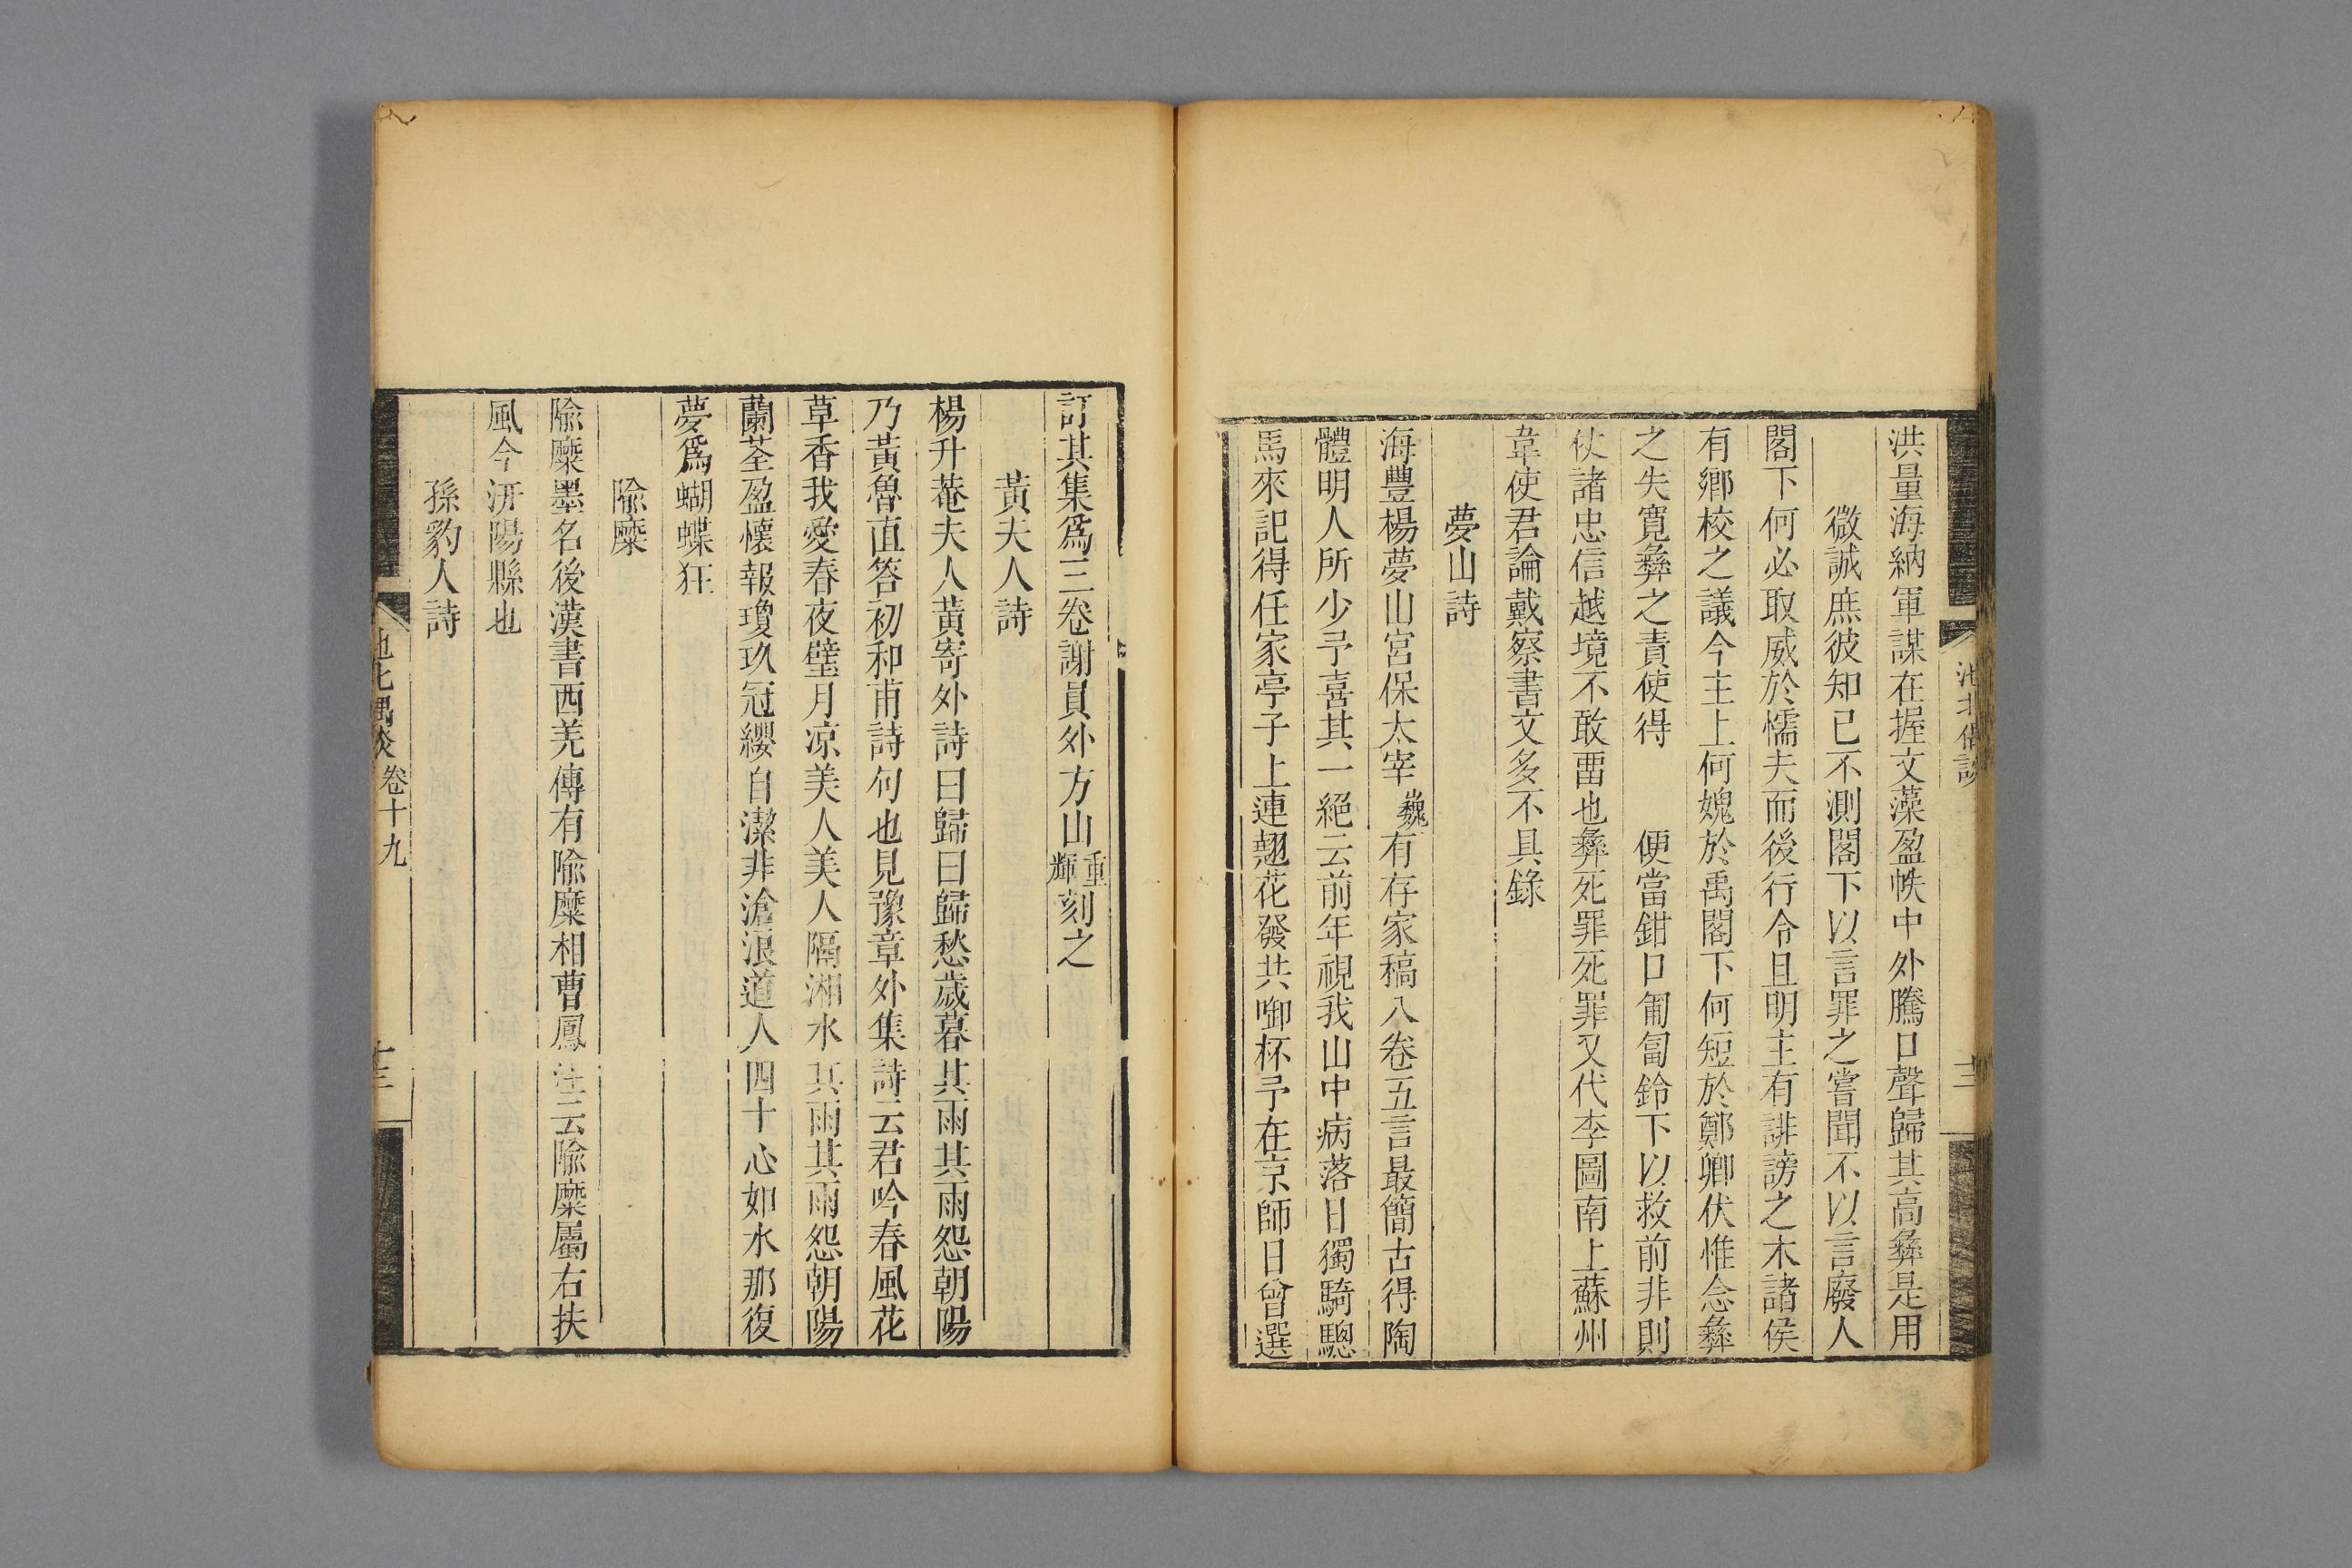 洪量海納軍謀在握文藻盈帙中外騰口聲歸其高彝是用
微誠庶彼知已不測閣下以言罪之嘗聞不以言廢人
閣下何必取威於懦夫而後行令且明主有誹謗之木諸侯
有鄉校之議今主上何媿於禹閣下何短於鄭卿伏惟念彝
之失寬彝之責使得 便當鉗口匍匐鈴下以救前非則
仗諸忠信越境不敢畱也彝死罪死罪又代李圖南上蘇州
韋使君論戴察書文多不具錄
夢山詩
海豐楊夢山宮保太宰巍有存家稿八卷五言最簡古得陶
體明人所少予喜其一絕云前年視我山中病落日獨騎驄
馬來記得任家亭子上連翹花發共啣杯予在京師日曾選
訂其集爲三卷謝員外方山重輝刻之
黃夫人詩
楊升菴夫人黃寄外詩曰歸曰歸愁歲暮其雨其雨怨朝陽
乃黃魯直答初和甫詩句也見豫章外集詩云君吟春風花
草香我愛春夜璧月凉美人美人隔湘水其雨其雨怨朝陽
蘭荃盈懷報瓊玖冠纓自潔非滄浪道人四十心如水那復
夢爲蝴蝶狂
隃糜
隃糜墨名後漢書西羌傳有隃糜相曹鳳注云隃糜屬右扶
風今汧陽縣也
孫豹人詩
池北偶談 卷十九 十三